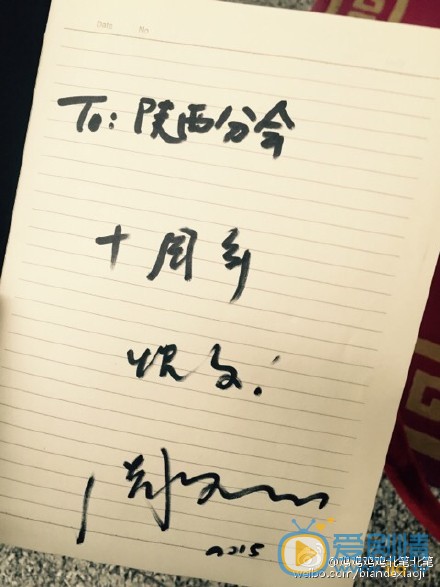 Date No
To: 陕西分会
十周年
快乐!
2015
爱剧情
weibo.com/biandexiaoji